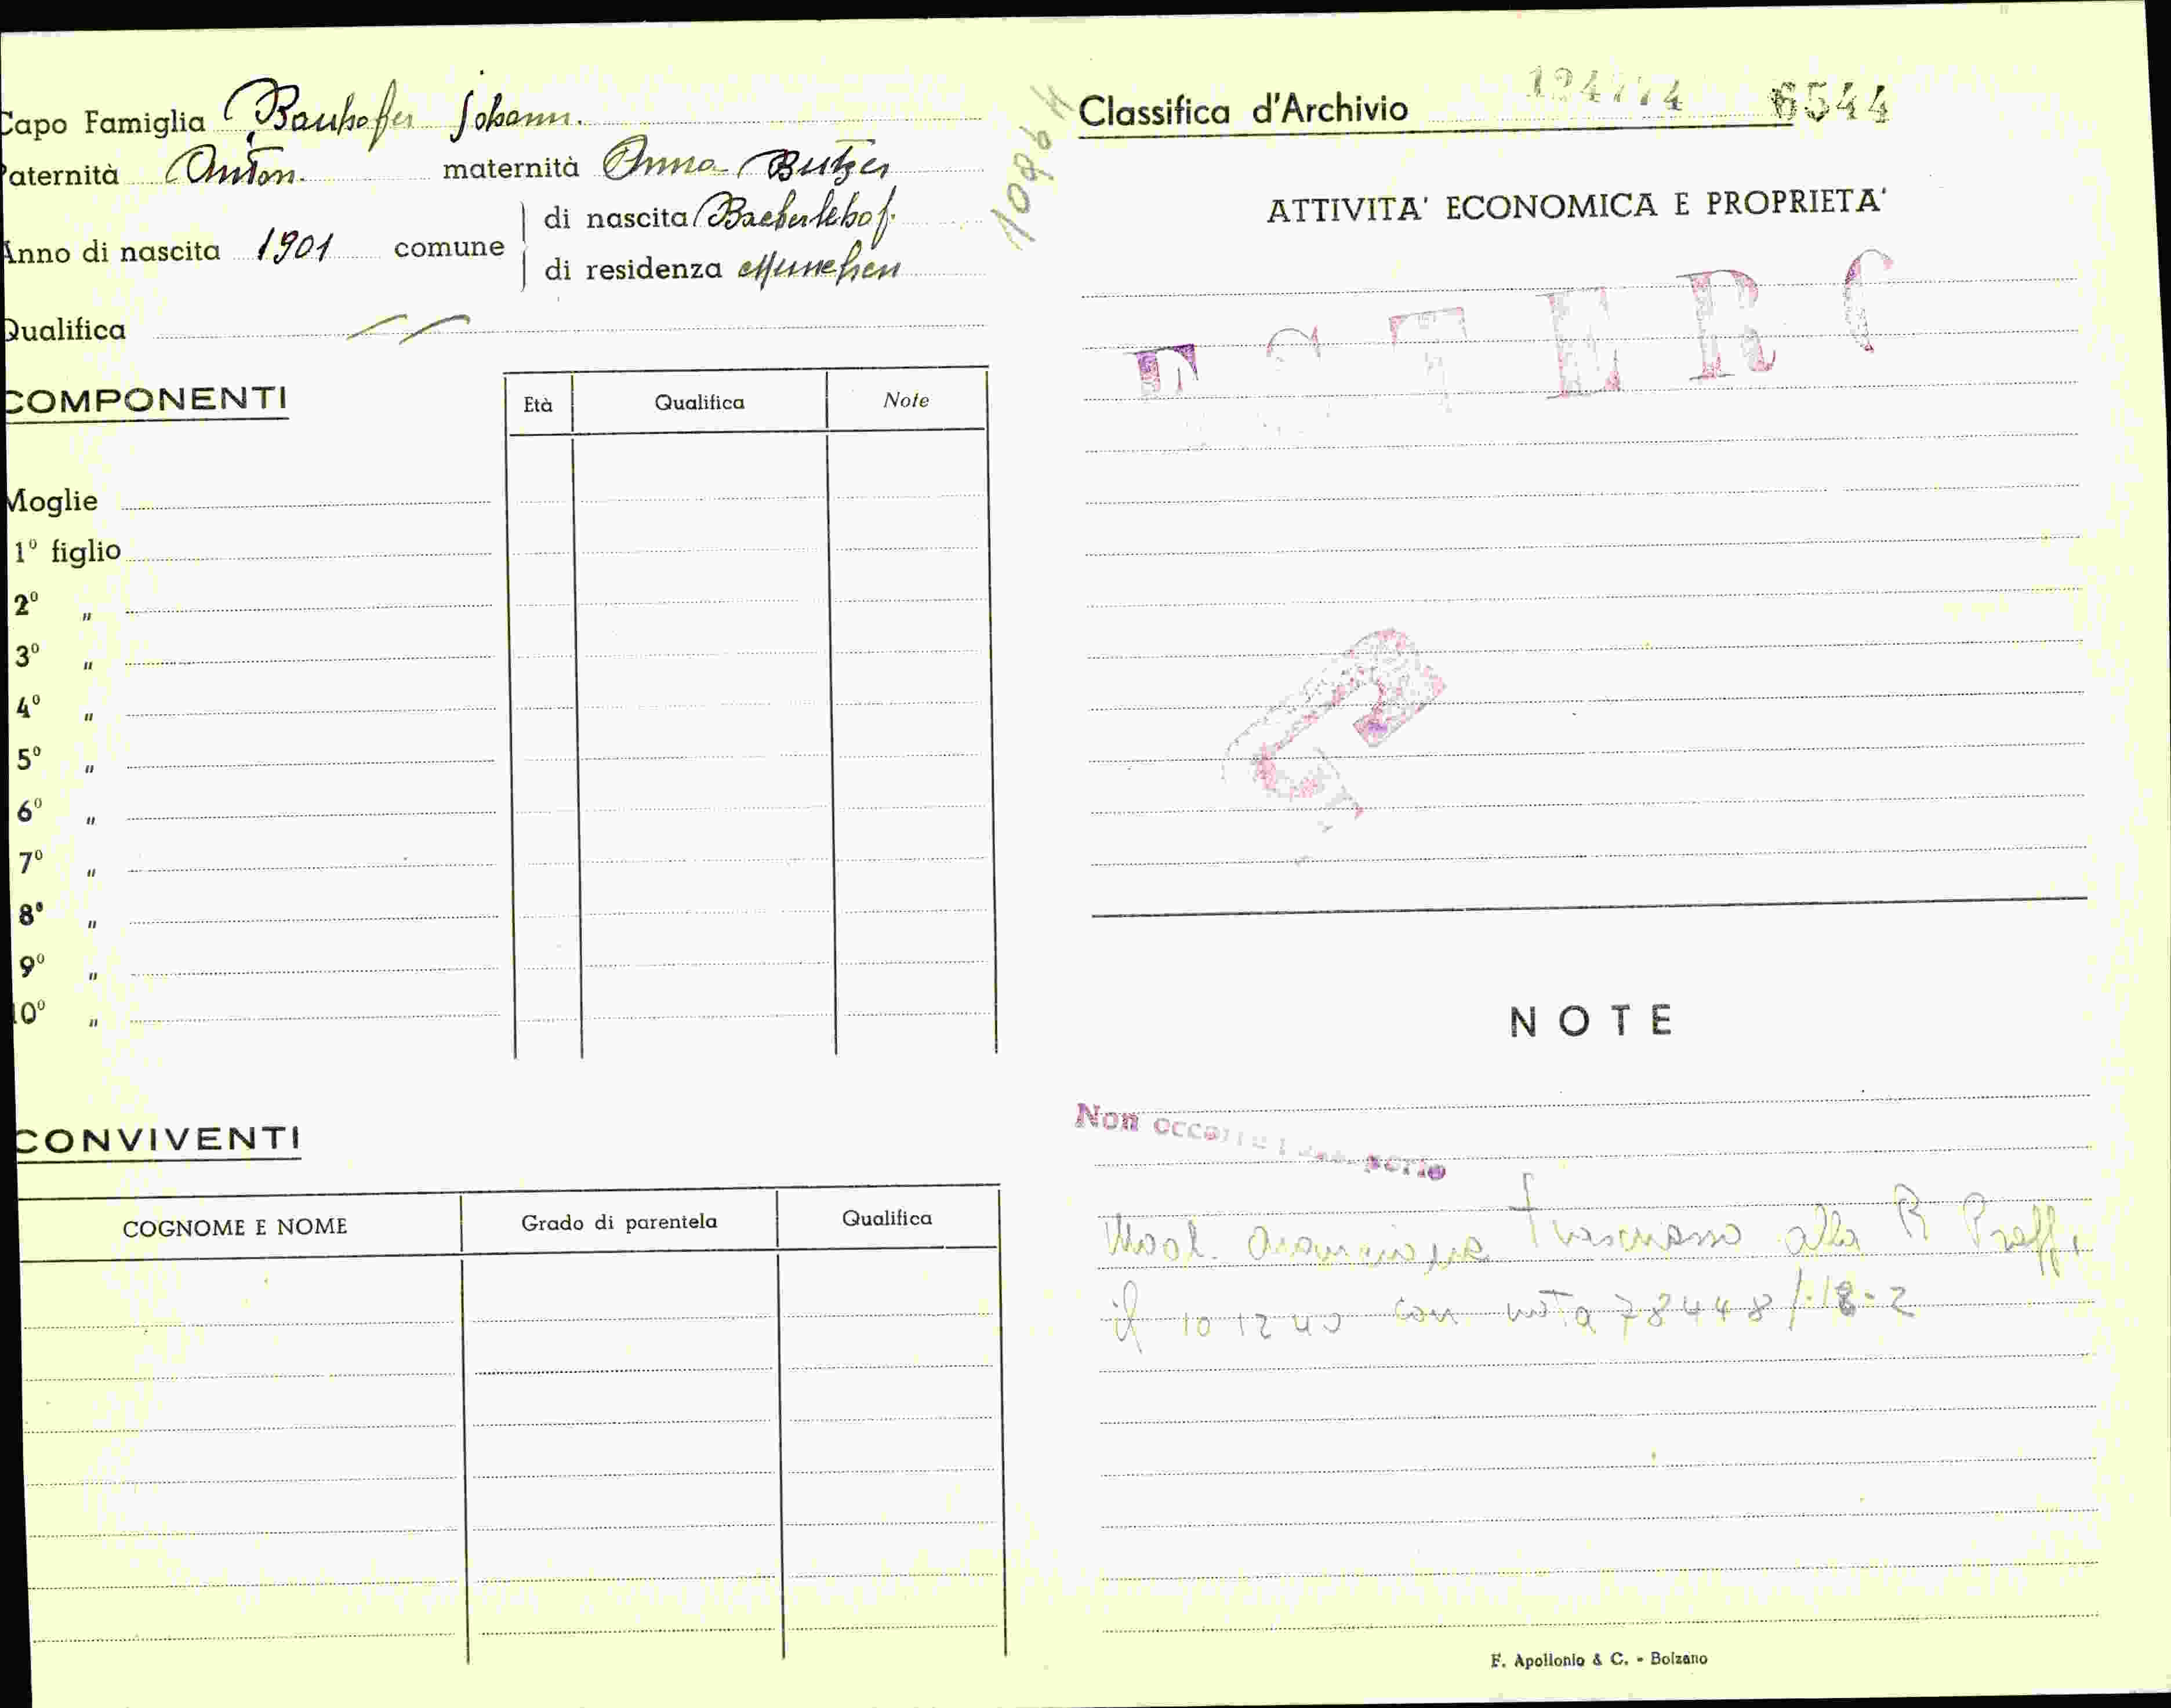 Capo Famiglia Bauhofer Johann.
Paternità Anton. maternità Anna Butzer
Anno di nascita 1901 comune di nascita
di residenza Munchen
Qualifica
COMPONENTI
Età Qualifica Note
Moglie
1º figlio
2º "
3º "
4º "
5º "
6º "
7º "
8º "
9º "
10º "
CONVIVENTI
COGNOME E NOME Grado di parentela Qualifica
Classifica d'Archivio 6544
ATTIVITA' ECONOMICA E PROPRIETA'
ESTERO
NOTE
Non
Trasmesso alla R Preff,
il 10 12 40 con nota 78448/
F. Apollonio & C. - Bolzano